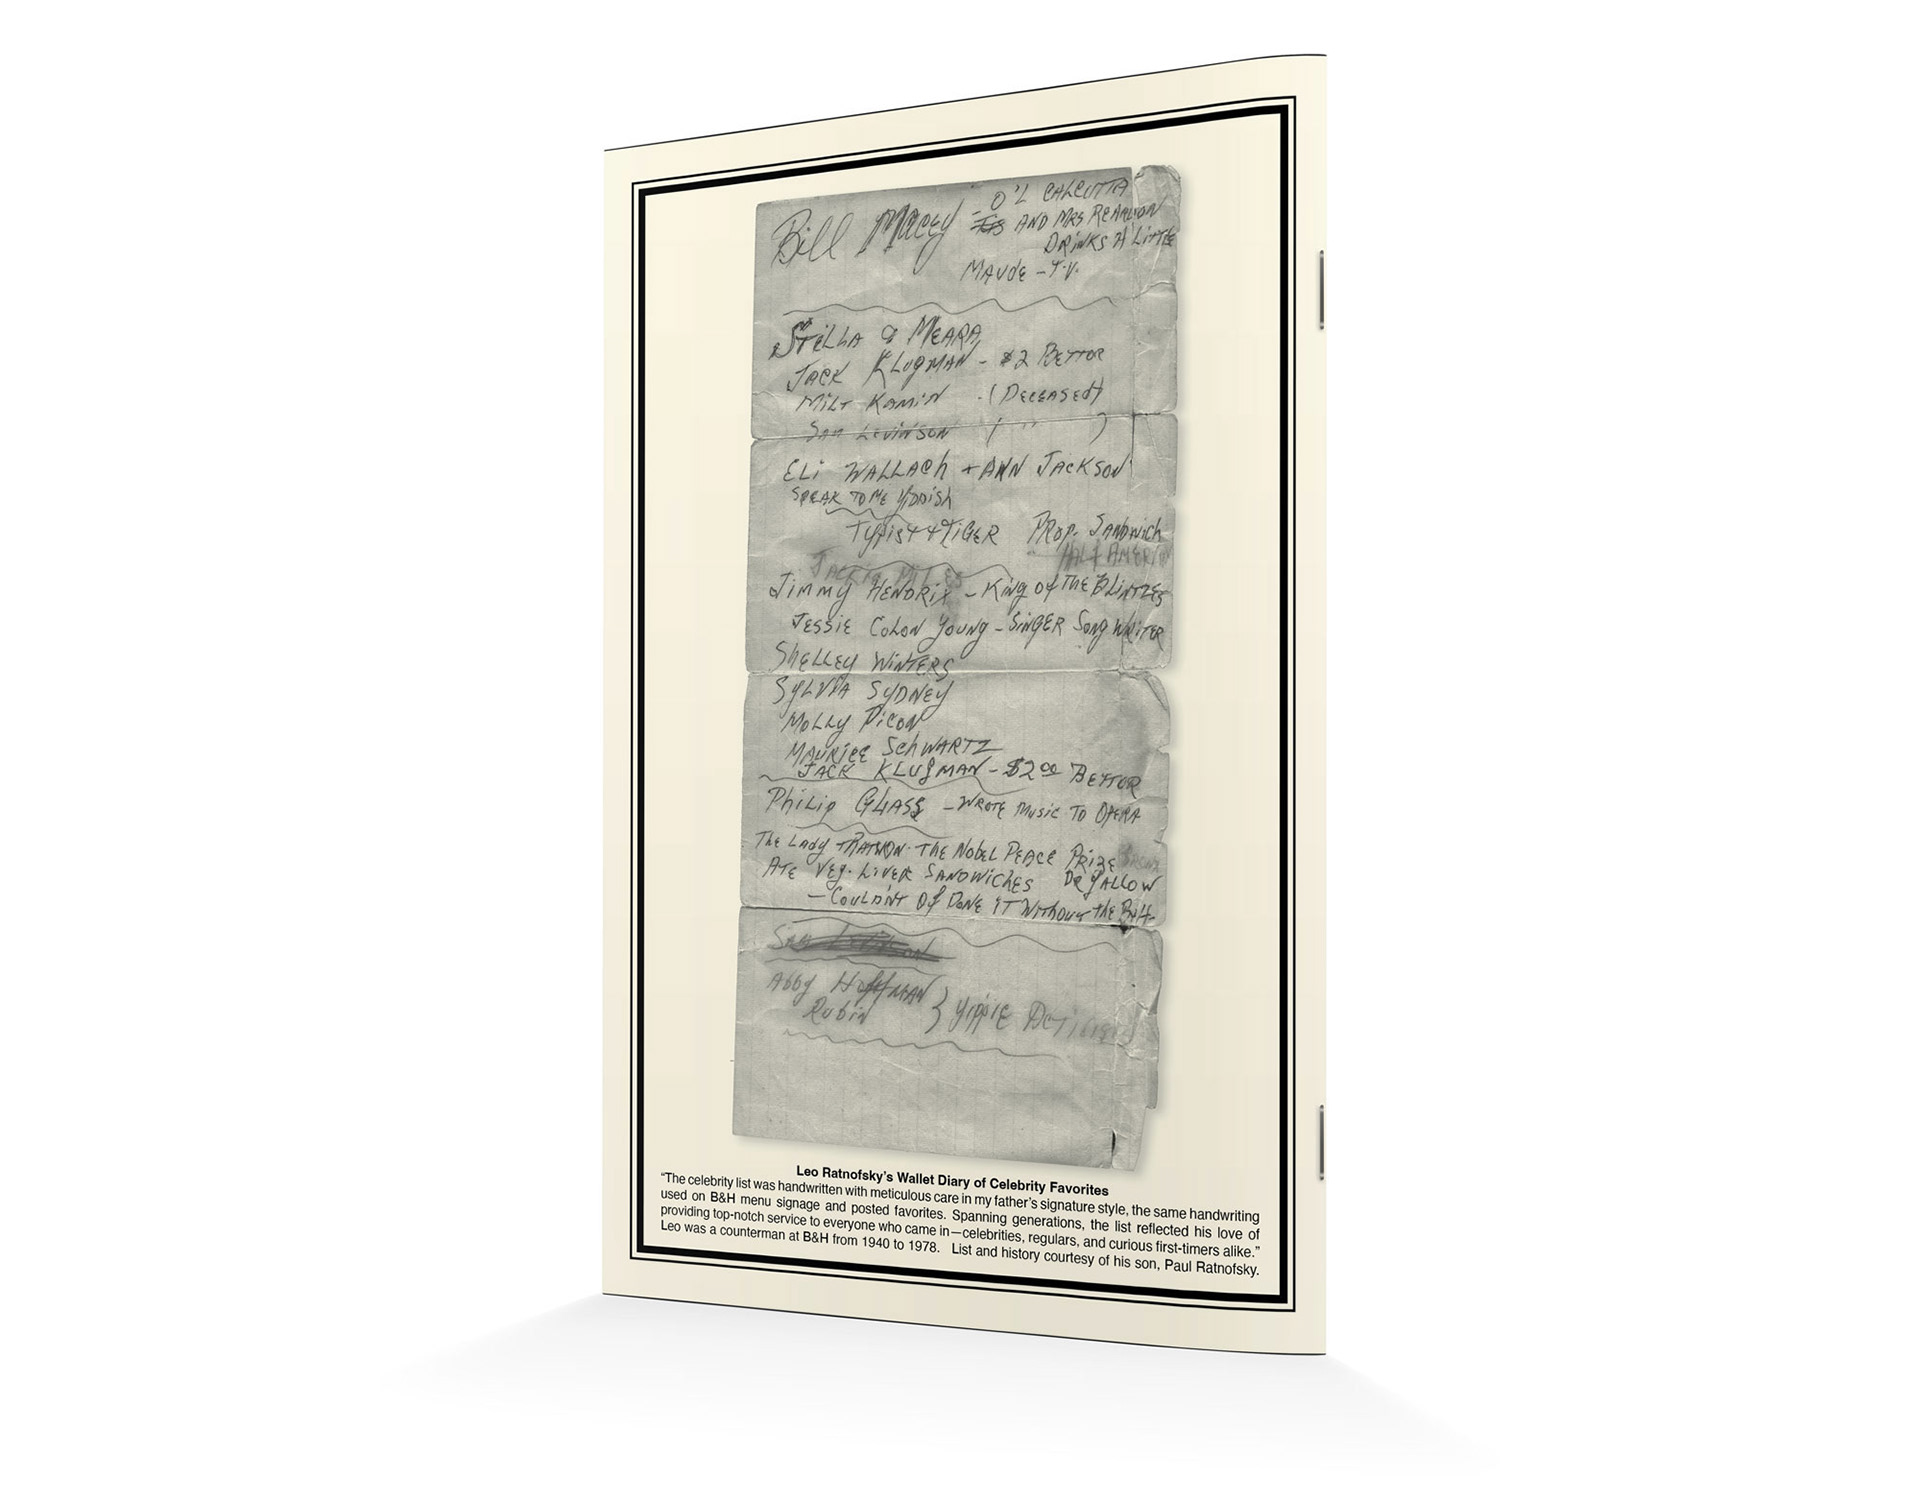 Bill Macey - O'L CALCUTTA
AND MRS REARDON
DRINKS A LITTLE
MAUDE - T.V.
STILLA & MEARA
JACK KLUGMAN - $2 BETTOR
MILT KAMIN - (DECEASED)
SAM LEVINSON ( '' )
ELI WALLACH + ANN JACKSON
SPEAK TO ME YIDDISH
TYPIST + TIGER PROP. SANDWICH
JACKIE MILES HALF AMERICAN
JIMMY HENDRIX - KING OF THE BLINTZES
JESSIE COLON YOUNG - SINGER SONG WRITER
SHELLEY WINTERS
SYLVIA SYDNEY
MOLLY PICON
MAURICE SCHWARTZ
JACK KLUGMAN - $2.00 BETTOR
PHILIP GLASS - WROTE MUSIC TO OPERA
THE LADY THAT WON THE NOBEL PEACE PRIZE
ATE VEG. LIVER SANDWICHES DR YALLOW
- COULDN'T OF DONE IT WITHOUT THE B+H-
SAM LEVINSON
ABBY HOFFMAN
RUBIN } YIPPIE
Leo Ratnofsky's Wallet Diary of Celebrity Favorites
“The celebrity list was handwritten with meticulous care in my father's signature style, the same handwriting
used on B&H menu signage and posted favorites. Spanning generations, the list reflected his love of
providing top-notch service to everyone who came in—celebrities, regulars, and curious first-timers alike.”
Leo was a counterman at B&H from 1940 to 1978. List and history courtesy of his son, Paul Ratnofsky.